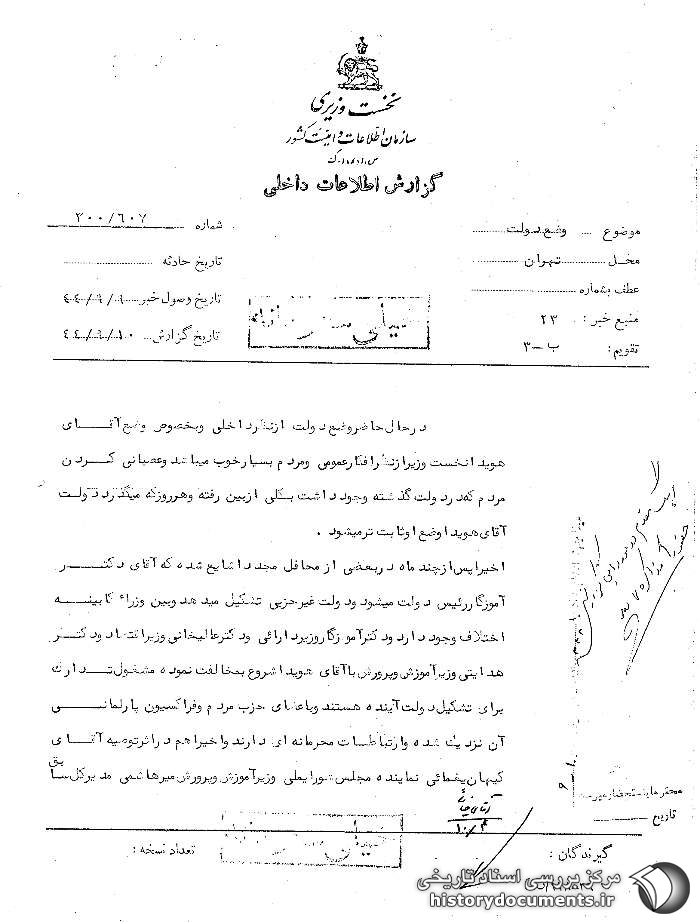 نخست وزیری
سازمان اطلاعات و امنیت کشور
س.ا.و.ا.ک
گزارش اطلاعات داخلی
موضوع وضع دولت
محل تهران
عطف بشماره
منبع خبر: ۲۳
تقویم: ب-۳
شماره ۳۰۰/۶۰۷
تاریخ حادثه
تاریخ وصول خبر ۴۴/۹/۹
تاریخ گزارش ۴۴/۹/۱۰
خیلی محرمانه
در حال حاضر وضع دولت از نظر داخلی وبخصوص وضع آقای
هویدا نخست وزیر از نظر افکار عمومی ومردم بسیار خوب میباشد وعصبانی کردن
مردم که در دولت گذشته وجود داشت بکلی از بین رفته وهر روز که میگذرد دولت
آقای هویدا وضع او ثابت تر میشود .
اخیرا پس از چند ماه در بعضی از محافل مجددا شایع شده که آقای دکتر
آموزگار رئیس دولت میشود ودولت غیر حزبی تشکیل میدهد وبین وزراء کابینه
اختلاف وجود دارد ودکتر آموزگار وزیر دارائی ودکتر عالیخانی وزیر اقتصاد ودکتر
هدایتی وزیر آموزش وپرورش با آقای هویدا شروع بمخالفت نموده مشغول تدارک
برای تشکیل دولت آینده هستند وباعضای حزب مردم وفراکسیون پارلمانی
آن نزدیک شده وارتباطات محرمانه ای دارند واخیرا هم در اثر توصیه آقای
کیهان یغمائی نماینده مجلس شورایملی وزیر آموزش وپرورش میرهاشمی مدیرکل سابق
تاریخ
گیرندگان :
تعداد نسخه :
مرکز بررسی اسناد تاریخی
historydocuments.ir